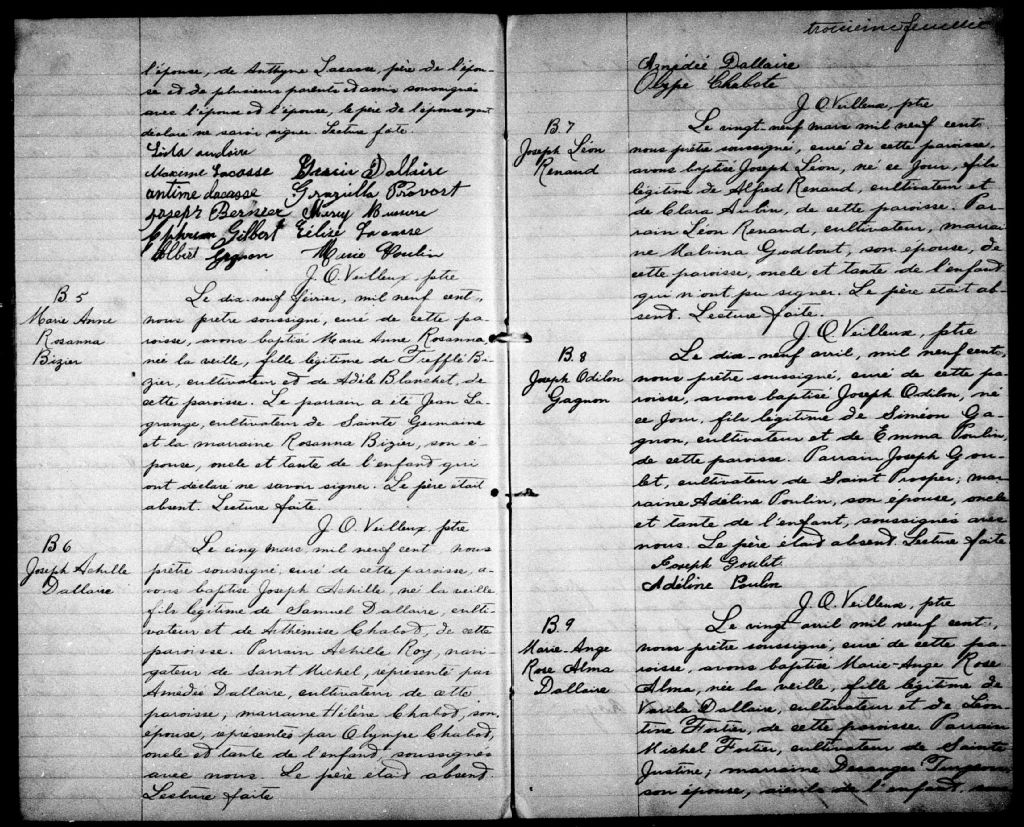 l'épouse, de Anthyme Lacasse, père de l'épou-
se et de plusieurs parents et amis soussignés
avec l'époux et l'épouse, le père de l'épouse ayant
déclaré ne savoir signer. Lecture faite.
Maxime Lacasse Dallaire
antime lacasse Graziella Provost
Joseph Bernier Mercy
Ephrem Gilbert Lacasse
Albert Gagnon Marie Poulin
J. O. Veilleux, ptre
B 5
Marie Anne
Rosanna
Bizier
Le dix-neuf février, mil neuf cent,
nous prêtre soussigné, curé de cette pa-
roisse, avons baptisé Marie Anne Rosanna,
née la veille, fille légitime de Trefflé Bi-
zier, cultivateur et de Adèle Blanchet, de
cette paroisse. Le parrain a été Jean La-
grange, cultivateur de Sainte Germaine
et la marraine Rosanna Bizier, son é-
pouse, oncle et tante de l'enfant qui
ont déclaré ne savoir signer. Le père était
absent. Lecture faite.
J. O. Veilleux, ptre
B 6
Joseph Achille
Dallaire
Le cinq mars, mil neuf cent, nous
prêtre soussigné, curé de cette paroisse, a-
vons baptisé Joseph Achille, né la veille
fils légitime de Samuel Dallaire, culti-
vateur et de Arthémise Chabot, de cette
paroisse. Parrain Achille Roy, navi-
gateur de Saint Michel, représenté par
Amédée Dallaire, cultivateur de cette
paroisse, marraine Hélène Chabot, son
épouse, représentée par Olympe Chabot,
oncle et tante de l'enfant soussignés
avec nous. Le père était absent.
Lecture faite
troisième feuillet
Amédée Dallaire
Olympe Chabote
J. O. Veilleux, ptre
B 7
Joseph Léon
Renaud
Le vingt-neuf mars mil neuf cent
nous prêtre soussigné, curé de cette paroisse,
avons baptisé Joseph Léon, né ce jour, fils
légitime de Alfred Renaud, cultivateur et
de Clara Aubin, de cette paroisse. Par-
rain Léon Renaud, cultivateur, marrai-
ne Malvina Godbout, son épouse, de
cette paroisse, oncle et tante de l'enfant
qui n'ont pu signer. Le père était ab-
sent. Lecture faite.
J. O. Veilleux, ptre
B 8
Joseph Odilon
Gagnon
Le dix-neuf avril, mil neuf cent,
nous prêtre soussigné, curé de cette pa-
roisse, avons baptisé Joseph Odilon, né
ce jour, fils légitime de Siméon Ga-
gnon, cultivateur et de Emma Poulin,
de cette paroisse. Parrain Joseph Gou-
let, cultivateur de Saint Prosper; mar-
raine Adéline Poulin, son épouse, oncle
et tante de l'enfant, soussignés avec
nous. Le père était absent. Lecture faite.
Joseph Goulet
Adéline Poulin
J. O. Veilleux, ptre
B 9
Marie-Ange
Rose Alma
Dallaire
Le vingt avril mil neuf cent,
nous prêtre soussigné, curé de cette pa-
roisse, avons baptisé Marie-Ange Rose
Alma, née la veille, fille légitime de
Dallaire, cultivateur et de Léon-
tine Fortier, de cette paroisse. Parrain
Michel Fortier, cultivateur de Sainte
Justine; marraine Desanges
son épouse, de l'enfant,